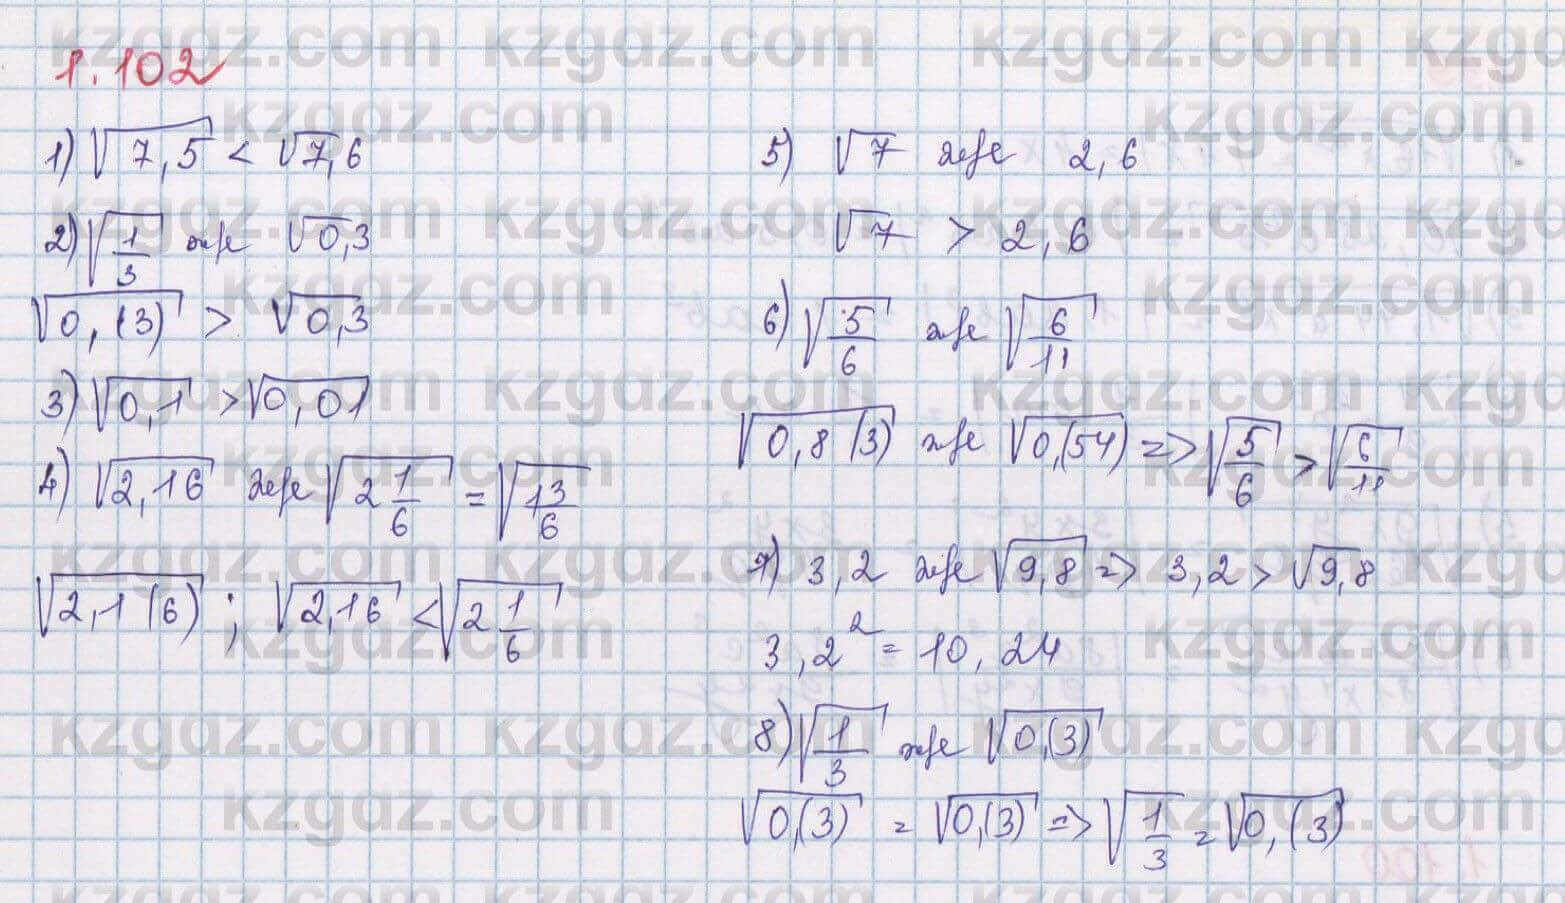 1.102
1) √7,5 < √7,6
2) √1/3 және √0,3
√0,(3) > √0,3
3) √0,1 > √0,01
4) √2,16 және √2 1/6 = √13/6
√2,1(6) ; √2,16 < √2 1/6
5) √7 және 2,6
√7 > 2,6
6) √5/6 және √6/11
√0,8(3) және √0,(54) => √5/6 > √6/11
7) 3,2 және √9,8 => 3,2 > √9,8
3,2² = 10,24
8) √1/3 және √0,(3)
√0,(3) = √0,(3) => √1/3 = √0,(3)
kzgdz.com